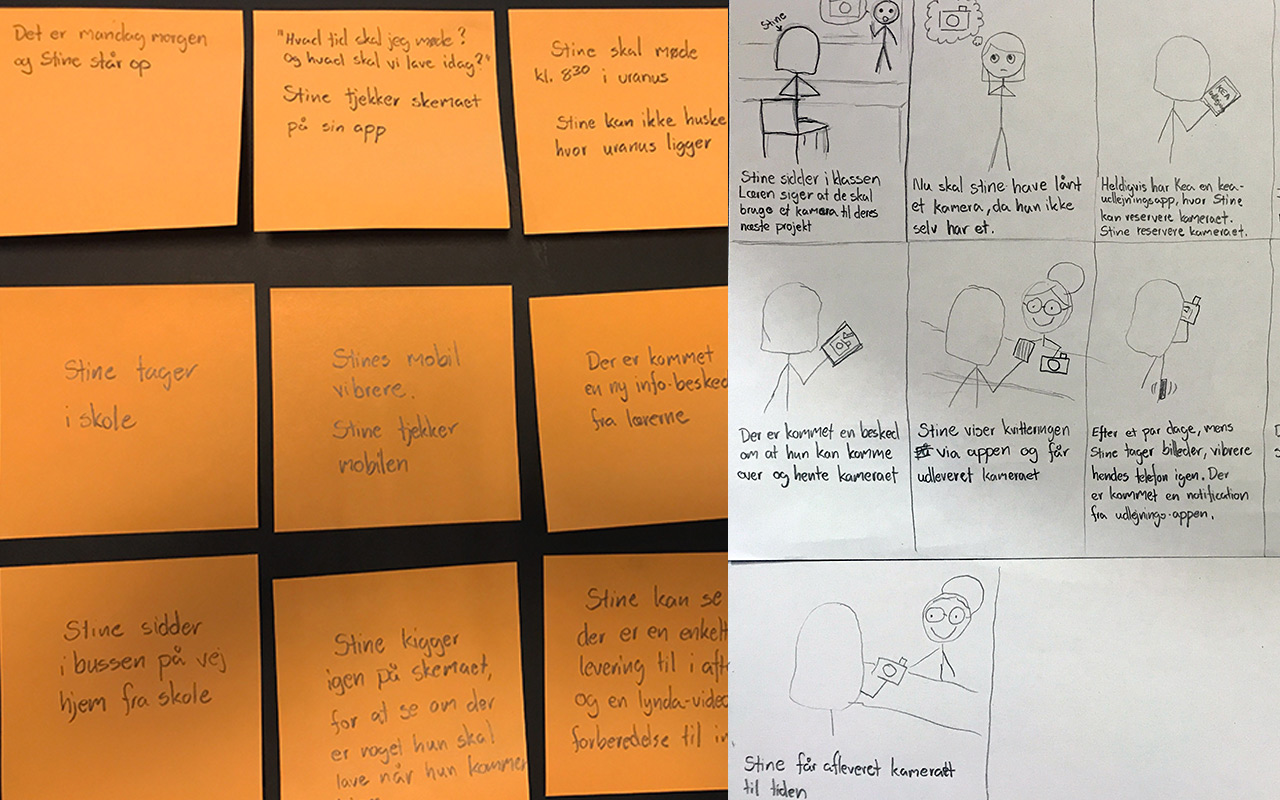 Det er mandag morgen
og Stine står op
"Hvad tid skal jeg møde?
og hvad skal vi lave idag?"
Stine tjekker skemaet
på sin app
Stine skal møde
kl. 8³⁰ i uranus
Stine kan ikke huske
hvor uranus ligger
Stine tager
i skole
Stines mobil
vibrere.
Stine tjekker
mobilen
Der er kommet
en ny info-besked
fra lærerne
Stine sidder
i bussen på vej
hjem fra skole
Stine kigger
igen på skemaet,
for at se om der
er noget hun skal
lave når hun kommer
Stine kan se
der er en enkelt
levering til i aft
og en lynda-video
forberedelse til i
Stine
Stine sidder i klassen
Læren siger at de skal
bruge et kamera til deres
næste projekt
Nu skal stine have lånt
et kamera, da hun ikke
selv har et.
KEA
Heldigvis har Kea en kea-
udlejningsapp, hvor Stine
kan reservere kameraet.
Stine reservere kameraet.
Der er kommet en besked
om at hun kan komme
over og hente kameraet
Stine viser kvitteringen
via appen og får
udleveret kameraet
Efter et par dage, mens
Stine tager billeder, vibrere
hendes telefon igen. Der
er kommet en notification
fra udlejnings-appen.
Stine får afleveret kameraet
til tiden